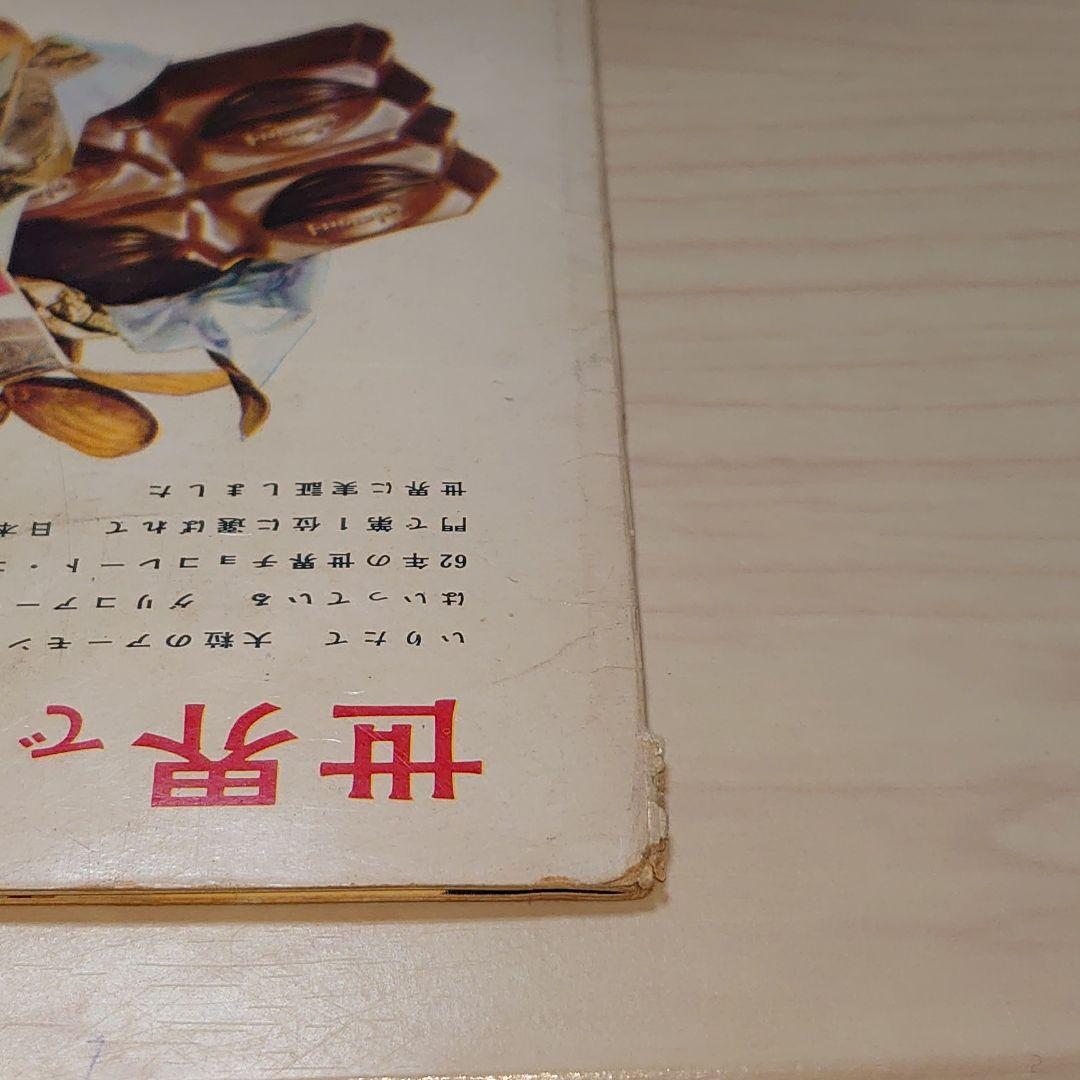 世界で
いりたて 大粒のアーモン
はいっている グリコアー
62年の世界チョコレート・コ
門で第1位に選ばれて 日本
世界に実証しました